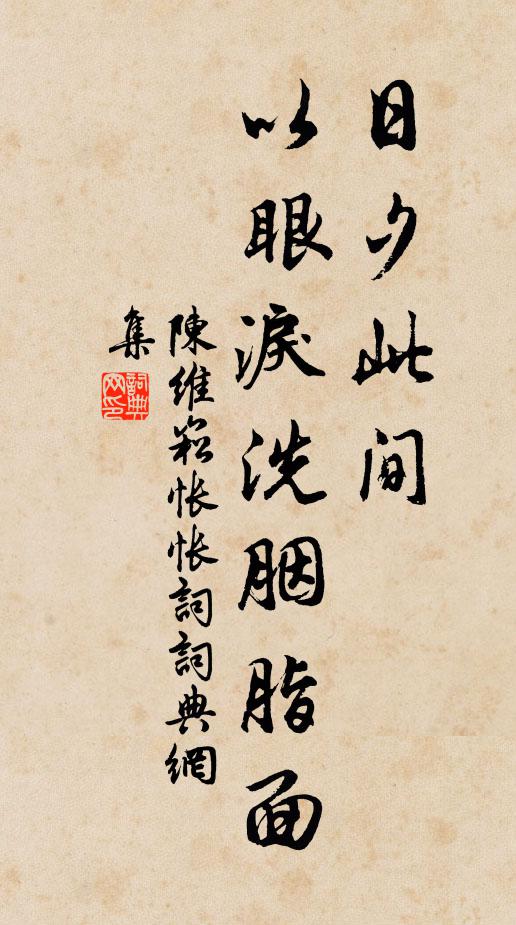 日夕此间
以眼淚洗胭脂面
陳維崧怅怅詞詞典網
集
詞典
网印